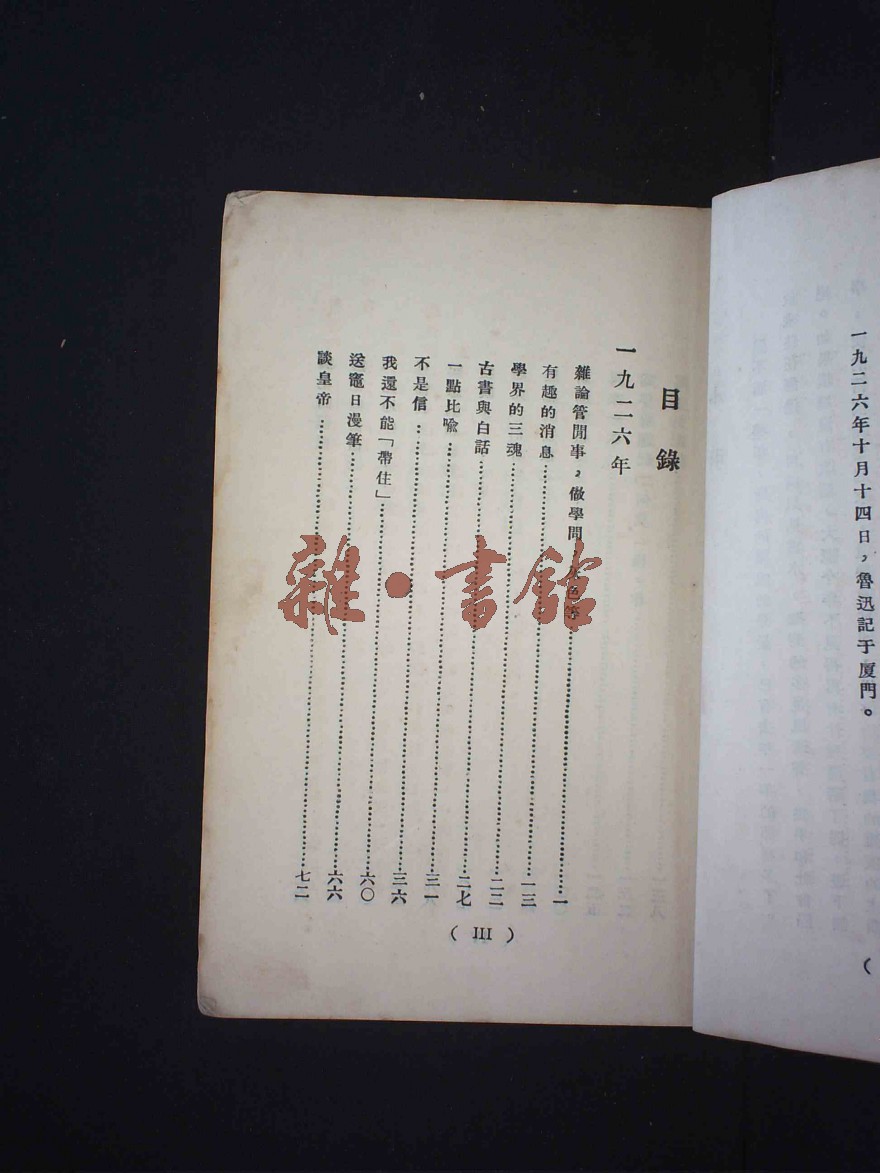 一九二六年十月十四日，魯迅記于厦門。
目錄
一九二六年
雜論管閒事，做學問 色等……一
有趣的消息……一三
學界的三魂……二二
古書與白話……二七
一點比喻……三一
不是信……三六
我還不能「帶住」……六〇
送竈日漫筆……六六
談皇帝……七二
( III )
雜·書館